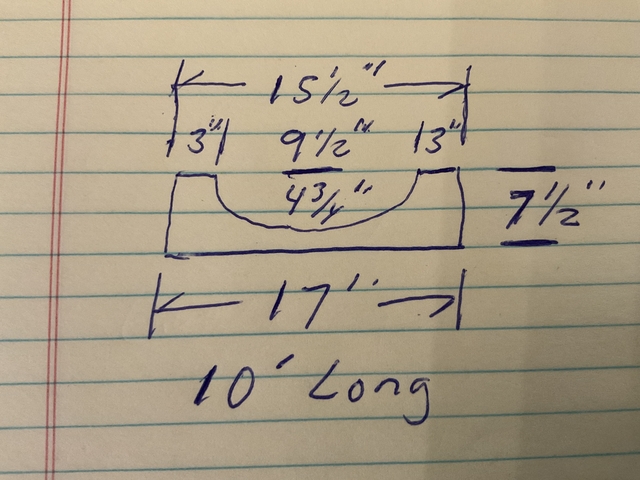 15 1/2"
3" 9 1/2" 3"
4 3/4"
7 1/2"
17"
10' Long